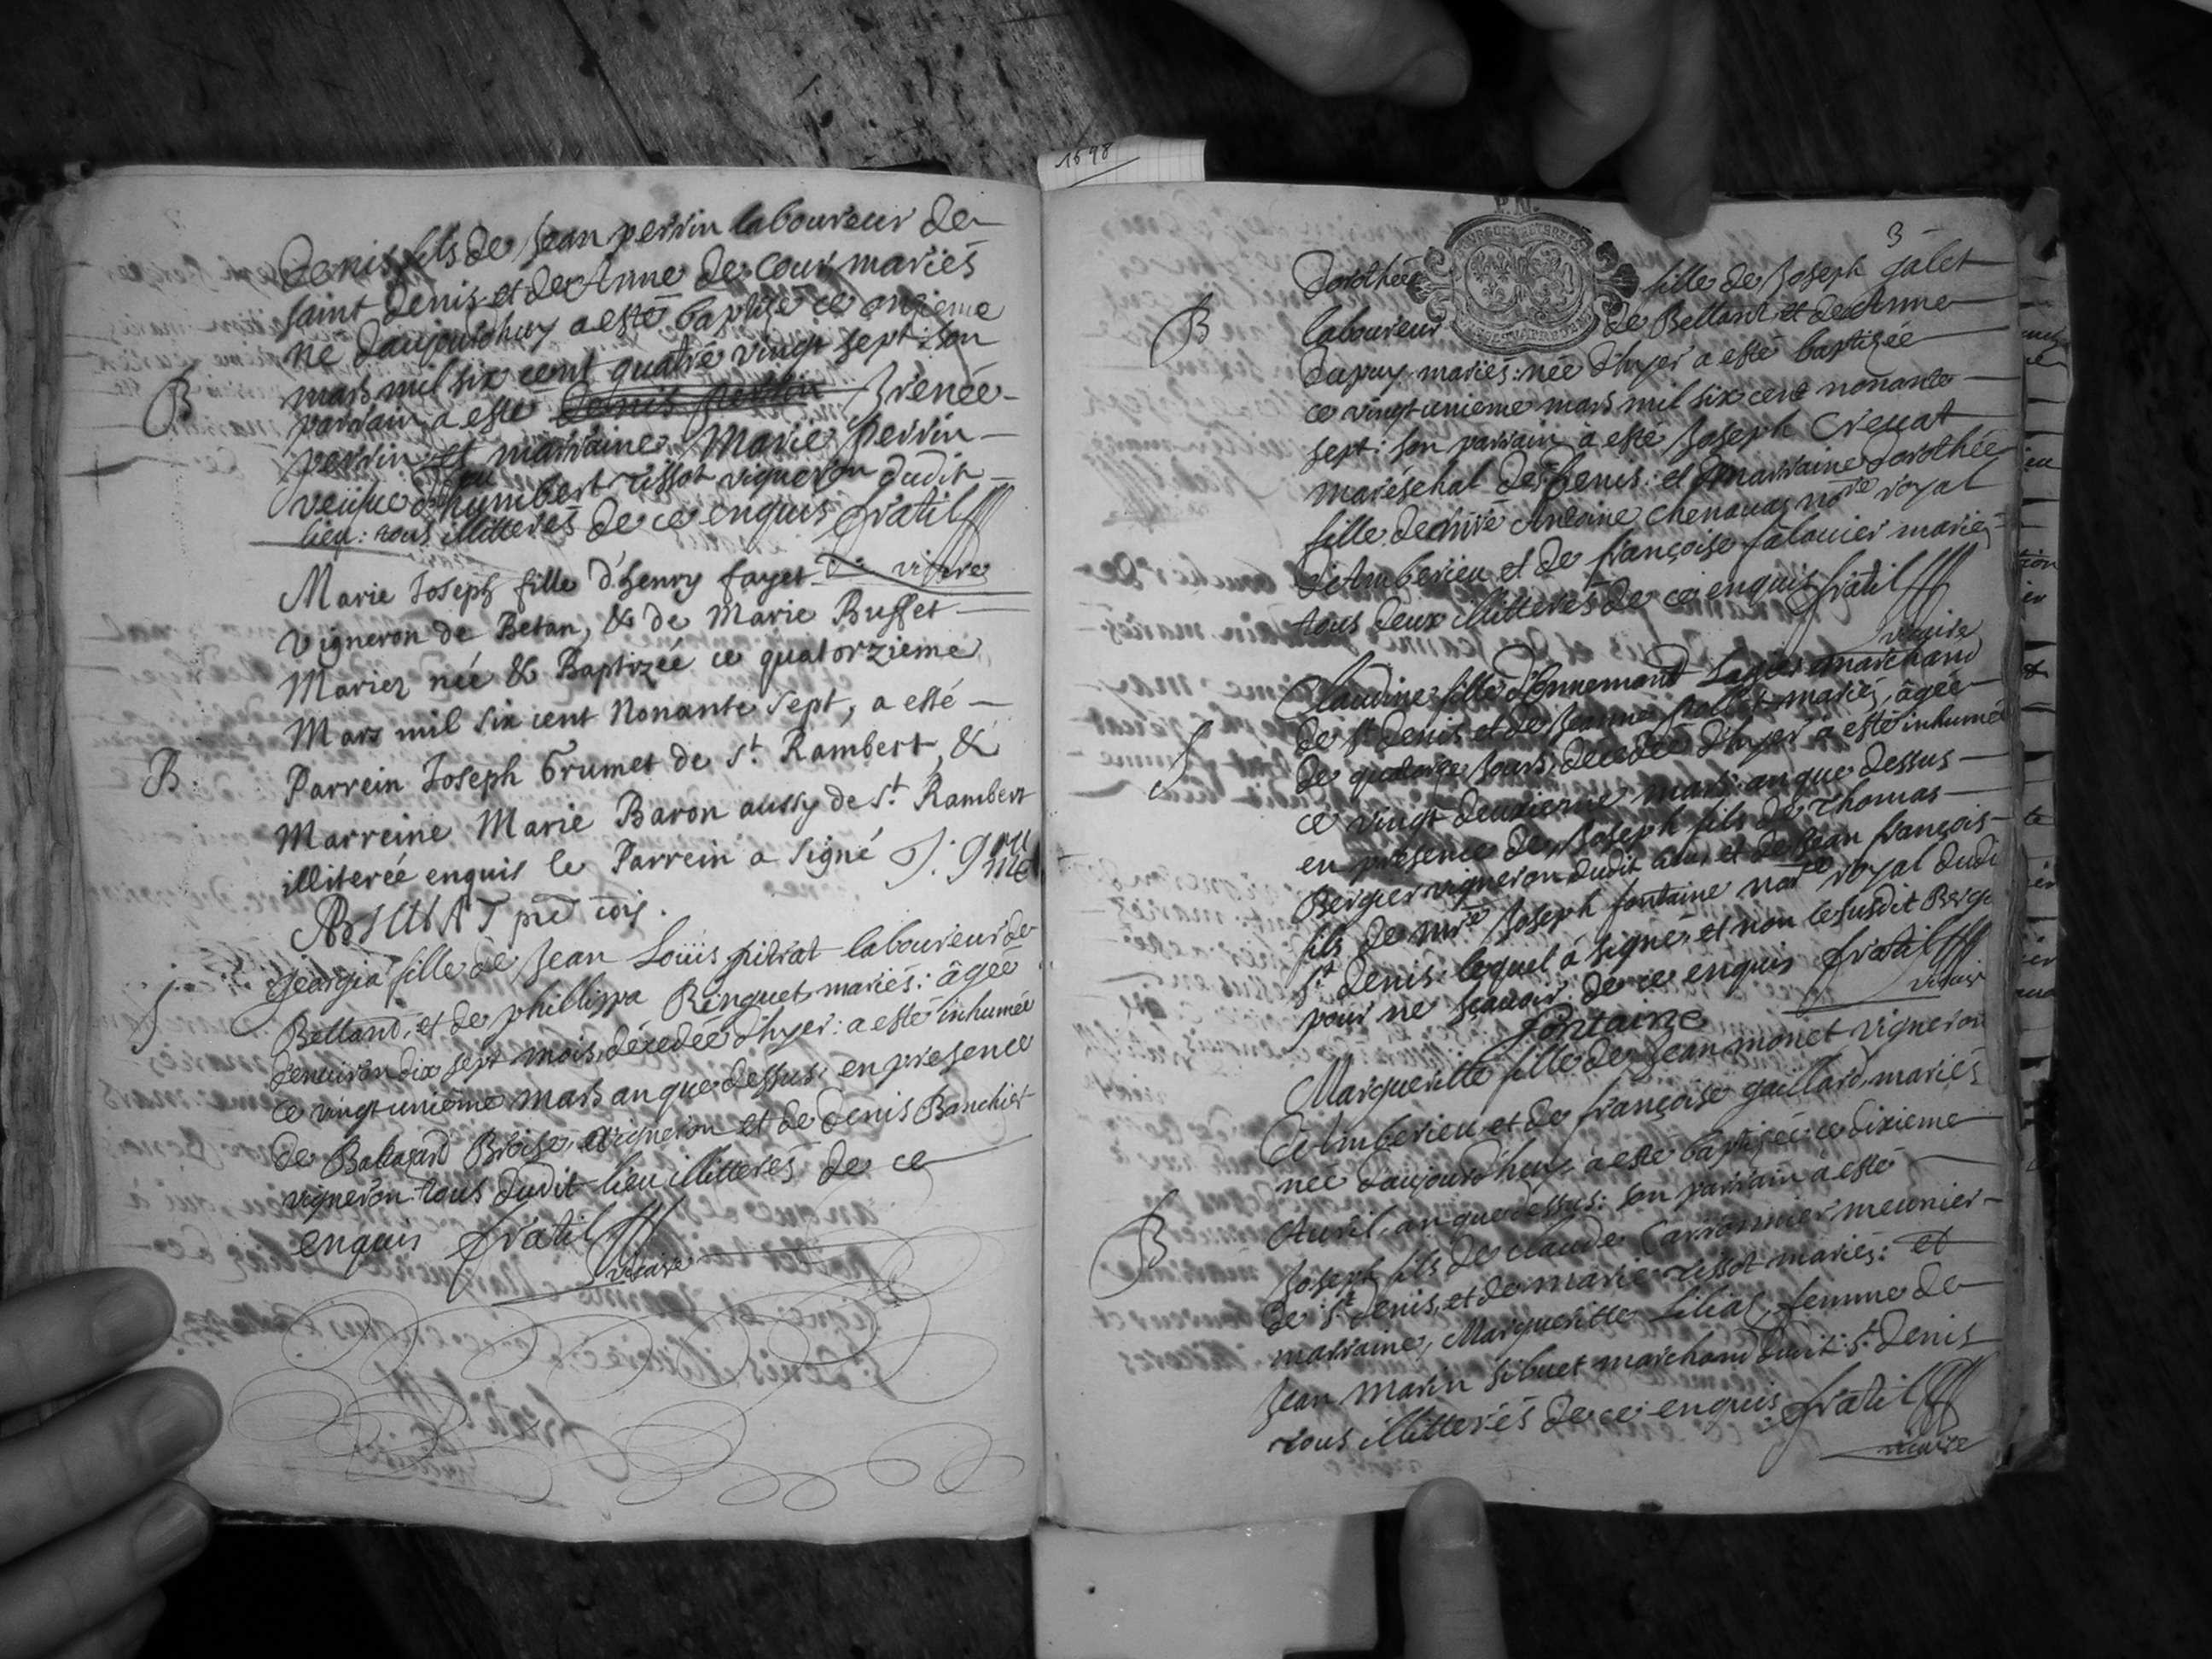 1698
Denis fils de Jean perrin laboureur de
saint denis et de Anne de Cour mariés
ne daujourdhuy a esté baptisé ce onzieme
mars mil six cent quatre vingt sept: son
parrain a esté denis perrin Irenée
perrin et marraine Marie perrin
veufve d'humbert tissot vigneron dudit
lieu: tous illitterés de ce enquis fratil
vicaire
B
Marie Joseph fille d'henry fayet
Vigneron de Betan, & de Marie Buffet
Mariez née & Baptizée ce quatorzieme
Mars mil six cent Nonante sept, a esté
B.
Parrein Joseph Grumet de St. Rambert, &
Marreine Marie Baron aussy de St. Rambert
illiterée enquis le Parrein a signé J: gru
met
S
georgia fille de Jean Loüis pitrat laboureur de
Betland, et de phillippa Ringuet mariés: âgée
denuiron dix sept mois, décedée d'hyer: a esté inhumée
ce vingt unieme mars an que dessus: en presence
de Baltazard Broise vigneron et de denis Banchet
vigneron tous dudit lieu illitterés de ce
enquis fratil
vicaire
3
Dorothée fille de Joseph Jalet
B
laboureur de Bettant et de Anne
dupuy mariés: née d'hyer a esté baptisée
ce vingt unieme mars mil six cent nonante
sept: son parrain à esté Joseph Creuat
maréschal de St Denis: et marraine dorothée
fille de mre Antoine chenauaz nore royal
d'Amberieu et de françoise falauier mariés
tous deux illitterés de ce enquis fratil
vicaire
Claudine fille d'Ennemond Lagier marchand
de St denis et de Jeanne pollet mariés, âgée
S
de quatorze jours, decedée d'hyer a esté inhumée
ce vingt deuxieme mars: an que dessus
en presence de Joseph fils de Thomas
Bergier vigneron dudit lieu, et de Jean françois
fils de mre Joseph fontaine nore royal dudi
St denis: lequel à signé, et non le susdit Bergi
pour ne sçauoir de ce enquis fratil
vicaire
fontaine
Marguerite fille de Jean monet vigneron
d'Amberieu et de françoise gaillard, mariés
née daujourd'huy à esté baptisée ce dixieme
Auril, an que dessus: son parrain à esté
B
Joseph fils de claude Carronnier meunier
de St denis, et de marie tissot mariés: et
marraine, Marguerite Lilias, femme de
Jean Marin Sibuet marchand dudit St denis
tous illitterés de ce enquis fratil
vicaire